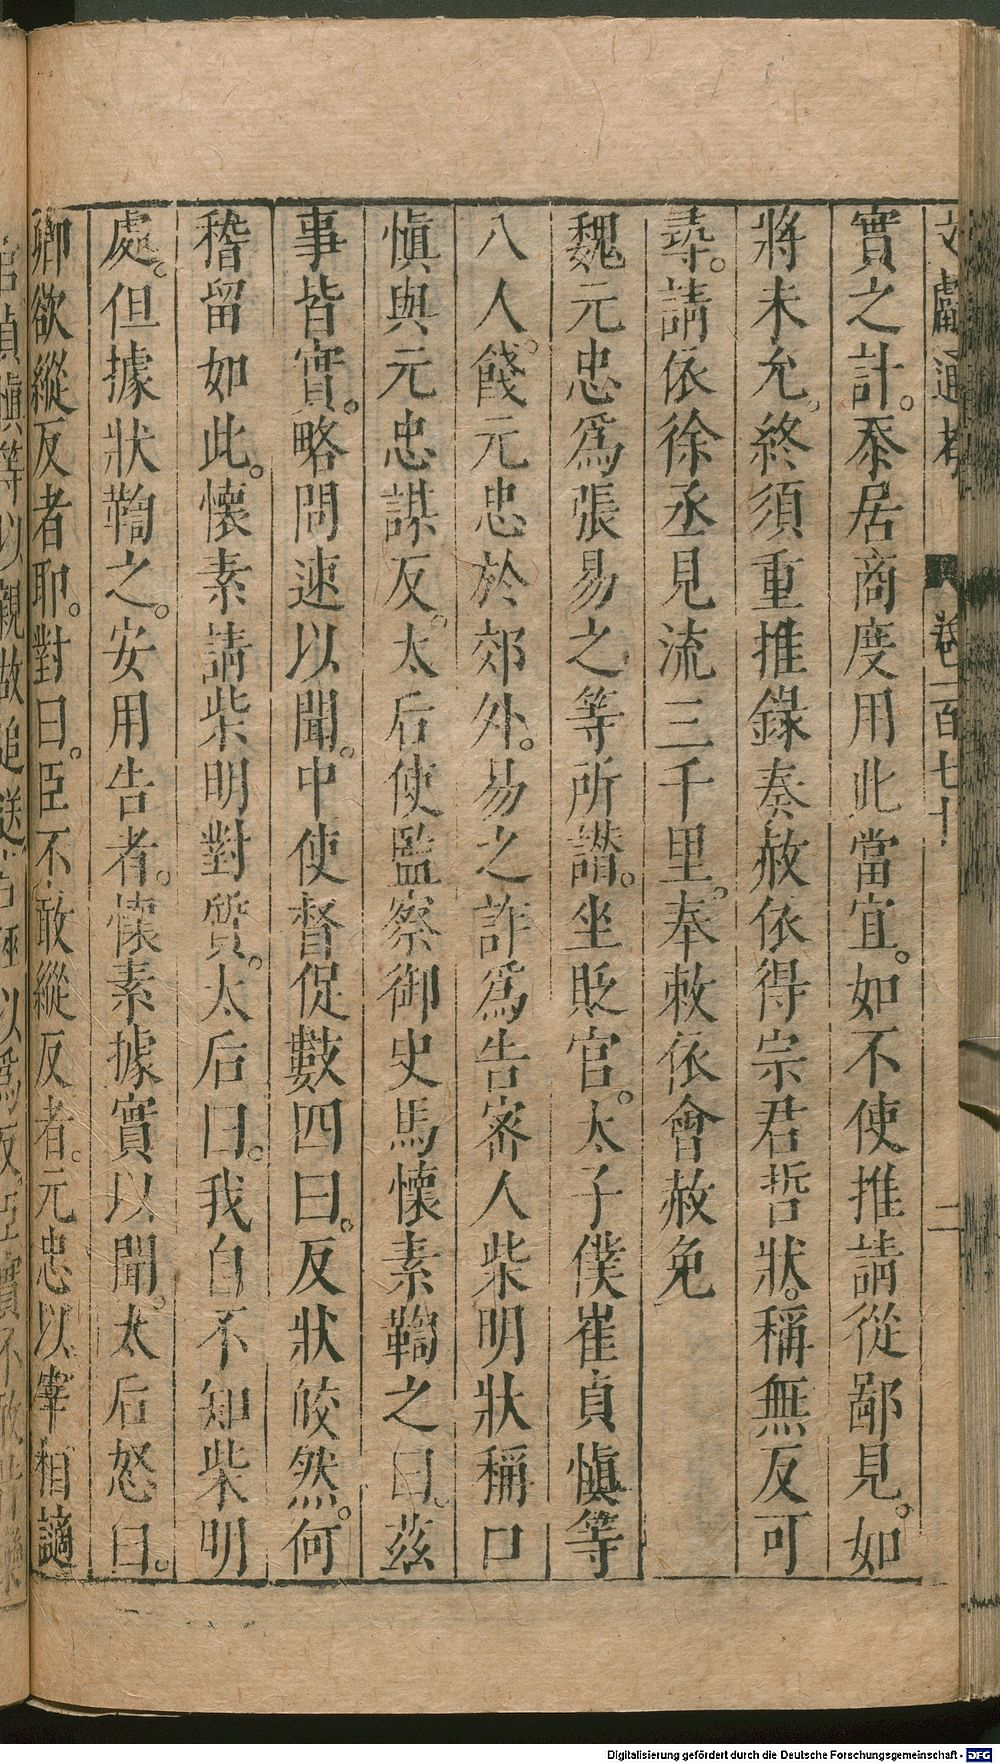 文獻通考 卷一百七十 二
實之計。忝居商度用此當宜。如不使推請從鄙見。如
將未允。終須重推錄奏赦依得宗君哲狀。稱無反可
尋。請依徐丞見流三千里。奉敕依會赦免
魏元忠爲張易之等所譖。坐貶官。太子僕崔貞愼等
八人。餞元忠於郊外。易之詐爲告密人柴明狀稱口
愼與元忠謀反。太后使監察御史馬懷素鞫之曰。茲
事皆實。略問速以聞。中使督促數四曰。反狀皎然。何
稽留如此。懷素請柴明對質。太后曰。我自不知柴明
處。但據狀鞫之。安用告者。懷素據實以聞。太后怒曰。
卿欲縱反者耶。對曰。臣不敢縱反者。元忠以宰相謫
官貞愼等以親故追送 以爲反。臣實不敢
Digitalisierung gefördert durch die Deutsche Forschungsgemeinschaft - DFG